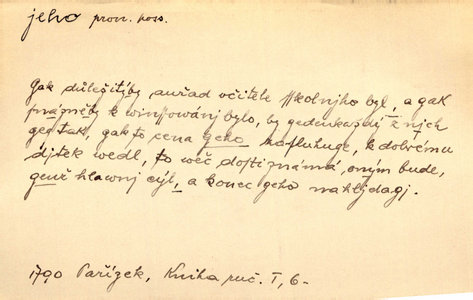 jeho pron. poss.
Gak důležitýby auřad včitele sskolnjho byl, a gak
prospěssný k winssowánj bylo, by gedenkaždý z nich
geg tak, gak to cena geho zasluhuge, k dobrému
užitek wedl, to wěc dosti známá oným bude,
genž hlawnj cýl, a konec geho nahljdagj.
1790 Pařízek, Kniha ruč. I, 6-